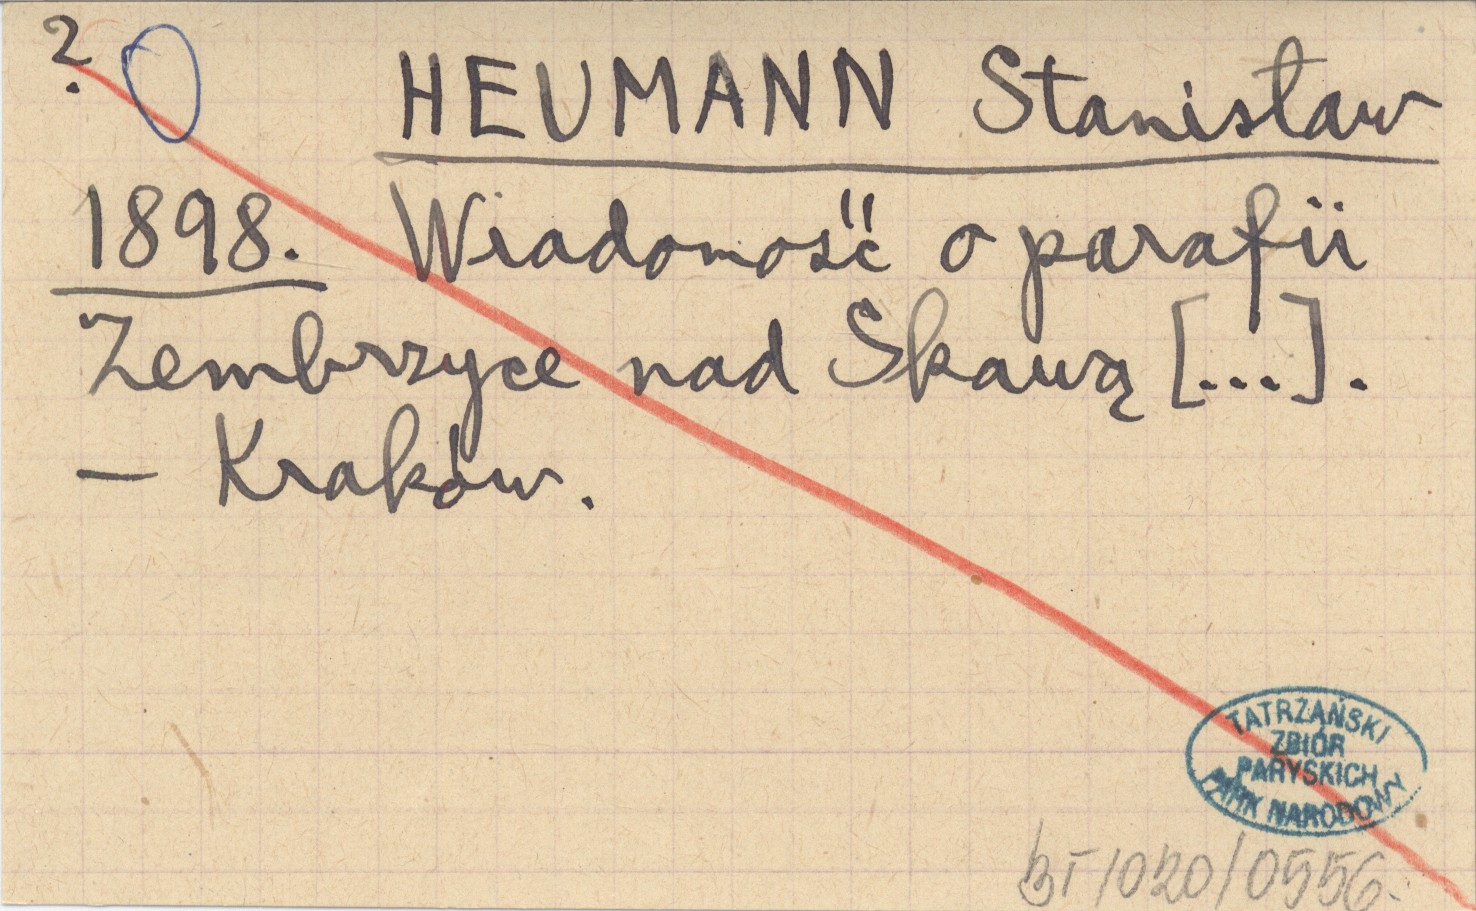 ?
HEUMANN Stanisław
1898. Wiadomość o parafii
Zembrzyce nad Skawą [...].
— Kraków.
TATRZAŃSKI
ZBIÓR
PARYSKICH
PARK NARODOWY
BT/020/0556.